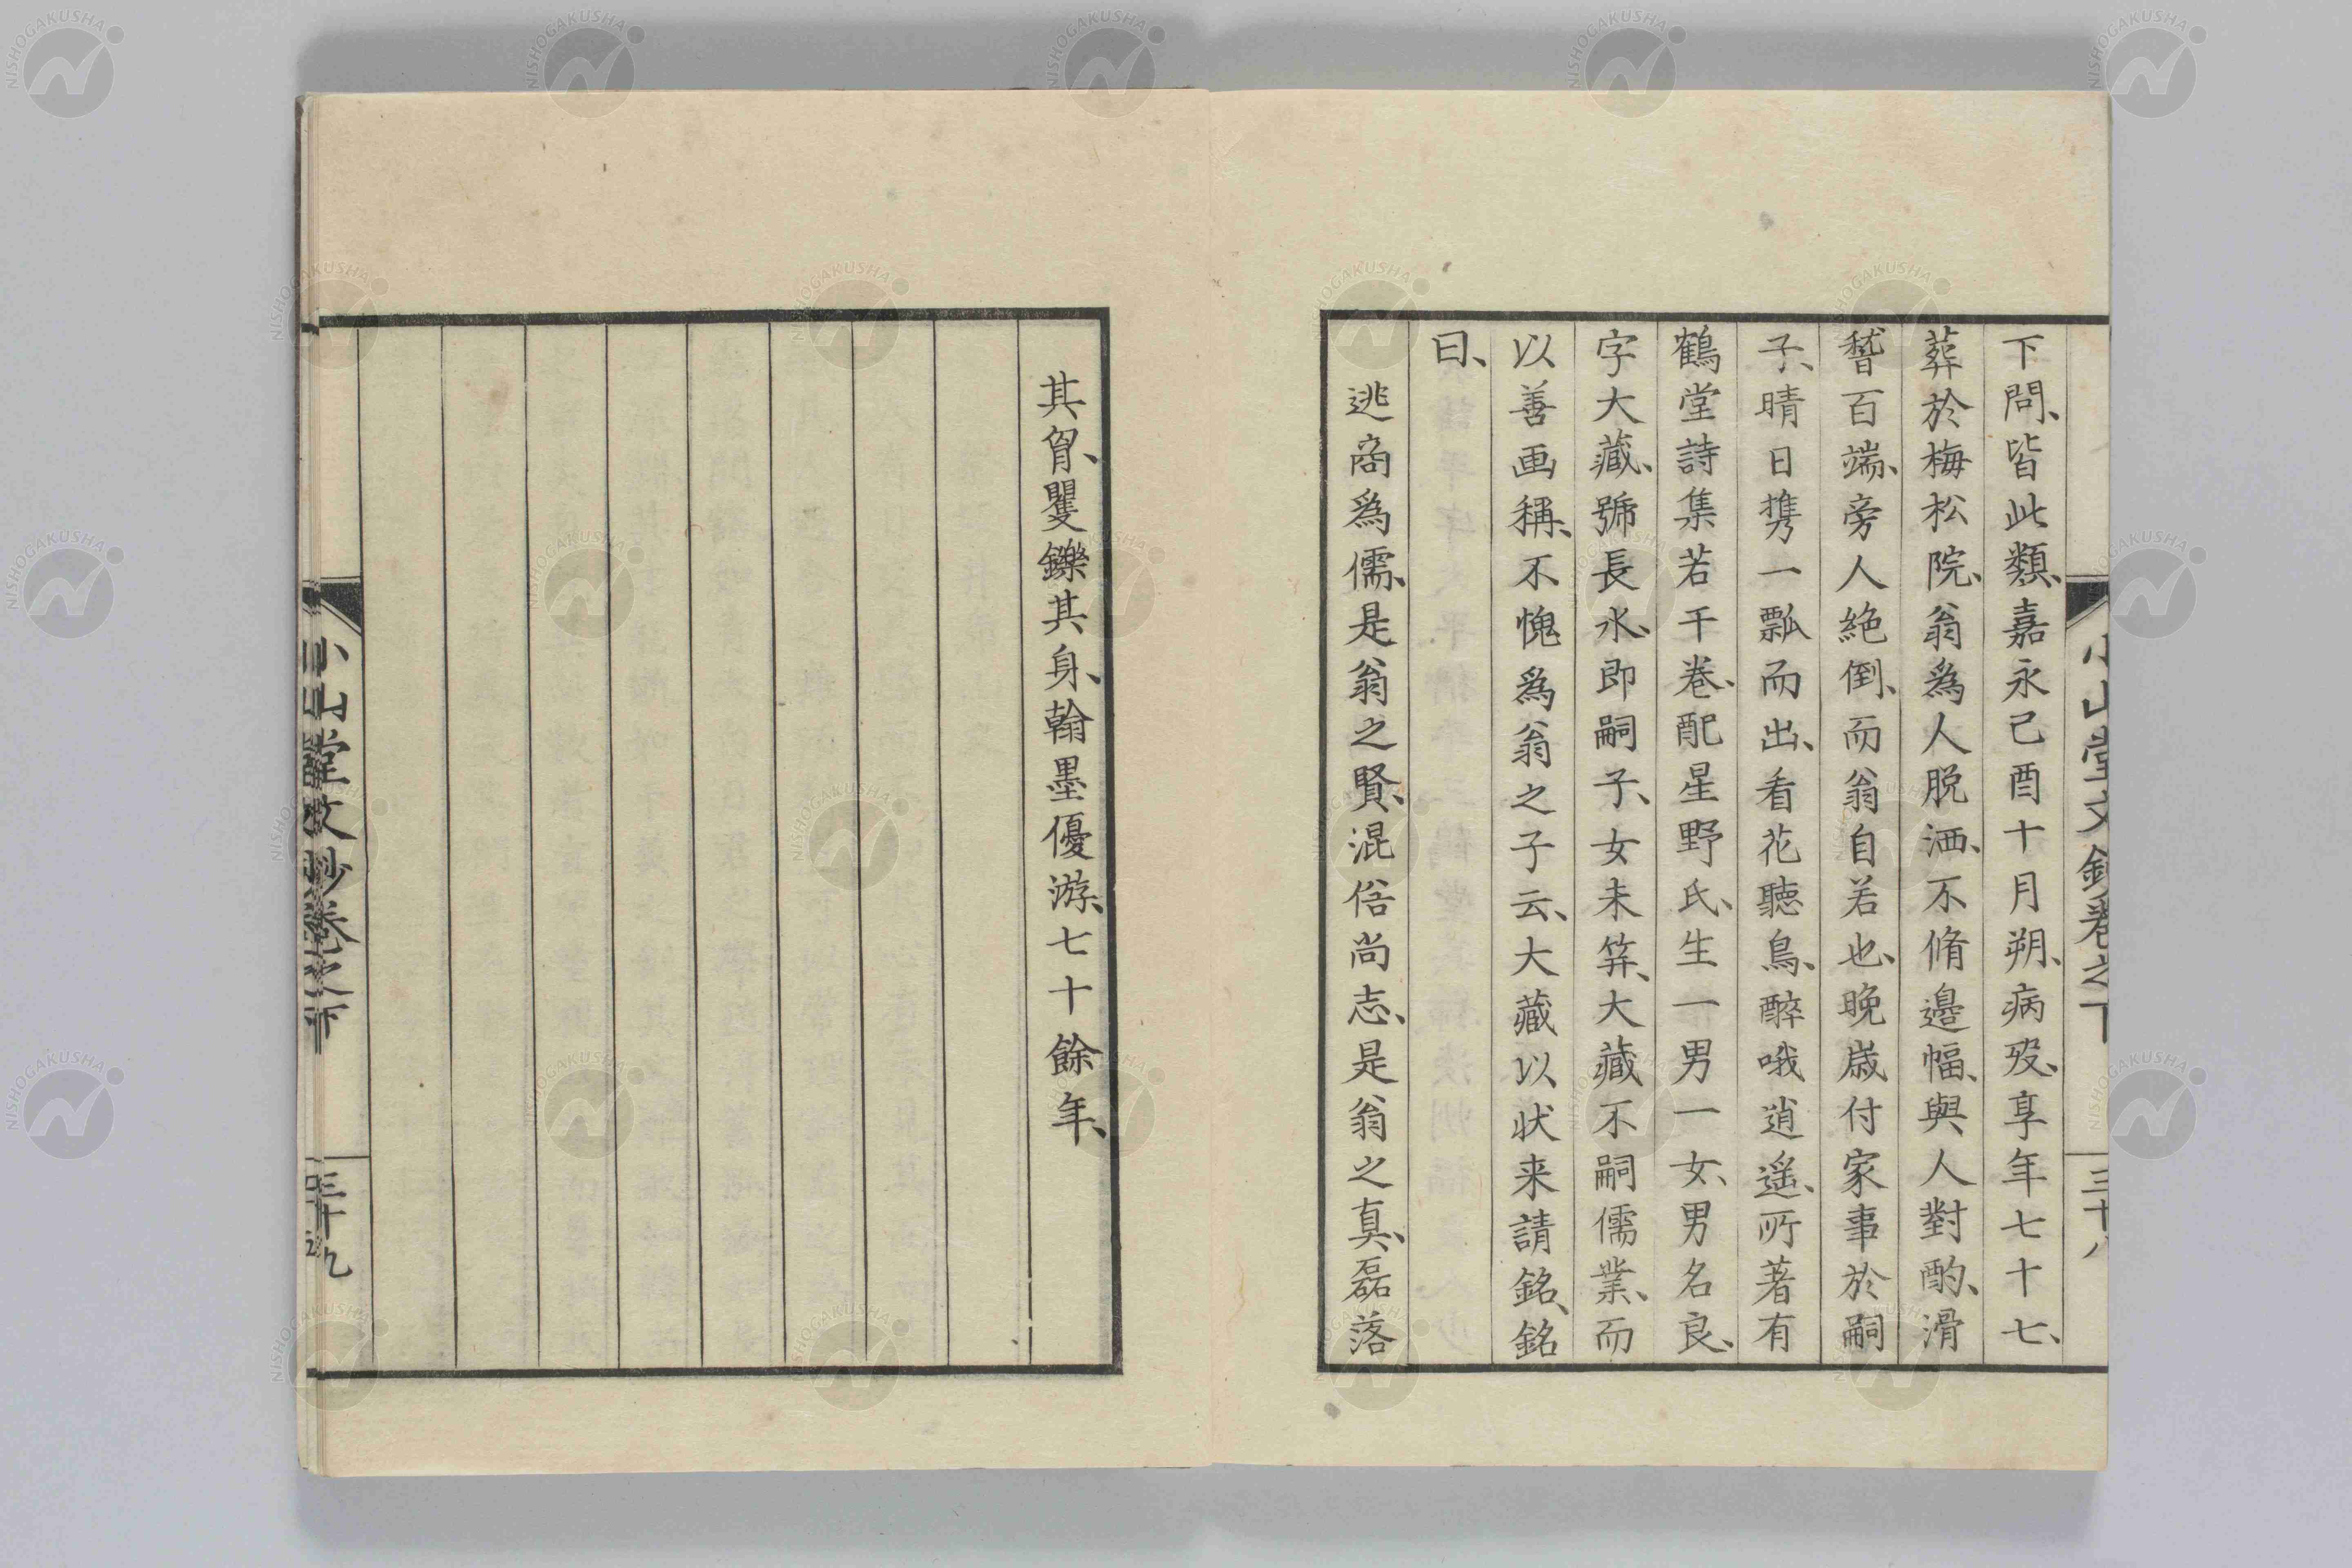 下問、皆此類、嘉永己酉十月朔、病歿、享年七十七、
葬於梅松院、翁為人脱洒、不脩邉幅、與人對酌、滑
稽百端、旁人絶倒、而翁自若也、晩歳付家事於嗣
子、晴日携一瓢而出、看花聽鳥、醉哦逍遥、所著有
鶴堂詩集若干卷、配星野氏、生一男一女、男名良、
字大藏、號長水、即嗣子、女未笄、大藏不嗣儒業、而
以善画稱、不愧爲翁之子云、大藏以状来請銘、銘
曰、
逃商爲儒、是翁之賢、混俗尚志、是翁之真、磊落
小山堂文鈔卷之下
三十八
其胷、矍鑠其身、翰墨優游、七十餘年、
小山堂文鈔卷之下
三十九
NISHOGAKUSHA